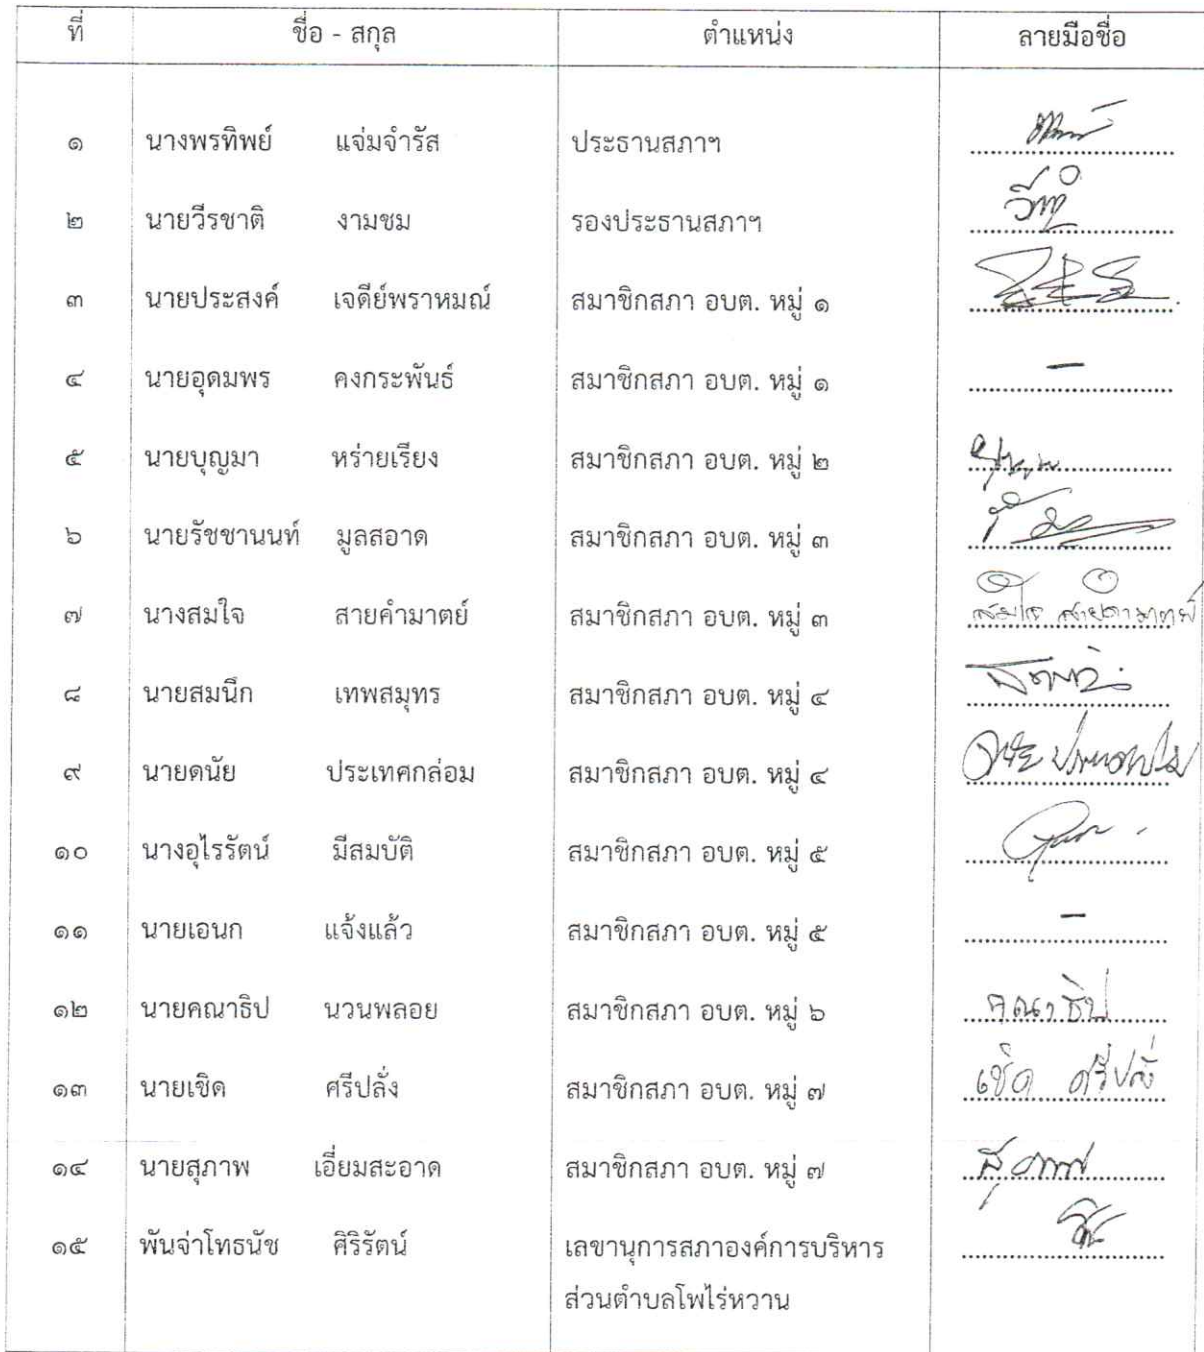 ที่ ชื่อ - สกุล ตำแหน่ง ลายมือชื่อ
๑ นางพรทิพย์ แจ่มจำรัส ประธานสภาฯ
๒ นายวีรชาติ งามชม รองประธานสภาฯ
๓ นายประสงค์ เจดีย์พราหมณ์ สมาชิกสภา อบต. หมู่ ๑
๔ นายอุดมพร คงกระพันธ์ สมาชิกสภา อบต. หมู่ ๑ -
๕ นายบุญมา หร่ายเรียง สมาชิกสภา อบต. หมู่ ๒
๖ นายรัชชานนท์ มูลสอาด สมาชิกสภา อบต. หมู่ ๓
๗ นางสมใจ สายคำมาตย์ สมาชิกสภา อบต. หมู่ ๓ สมใจ สายคำมาตย์
๘ นายสมนึก เทพสมุทร สมาชิกสภา อบต. หมู่ ๔
๙ นายดนัย ประเทศกล่อม สมาชิกสภา อบต. หมู่ ๔
๑๐ นางอุไรรัตน์ มีสมบัติ สมาชิกสภา อบต. หมู่ ๕
๑๑ นายเอนก แจ้งแล้ว สมาชิกสภา อบต. หมู่ ๕ -
๑๒ นายคณาธิป นวนพลอย สมาชิกสภา อบต. หมู่ ๖ คณาธิป
๑๓ นายเชิด ศรีปลั่ง สมาชิกสภา อบต. หมู่ ๗ เชิด ศรีปลั่ง
๑๔ นายสุภาพ เอี่ยมสะอาด สมาชิกสภา อบต. หมู่ ๗ สุภาพ
๑๕ พันจ่าโทธนัช ศิริรัตน์ เลขานุการสภาองค์การบริหาร
ส่วนตำบลโพไร่หวาน